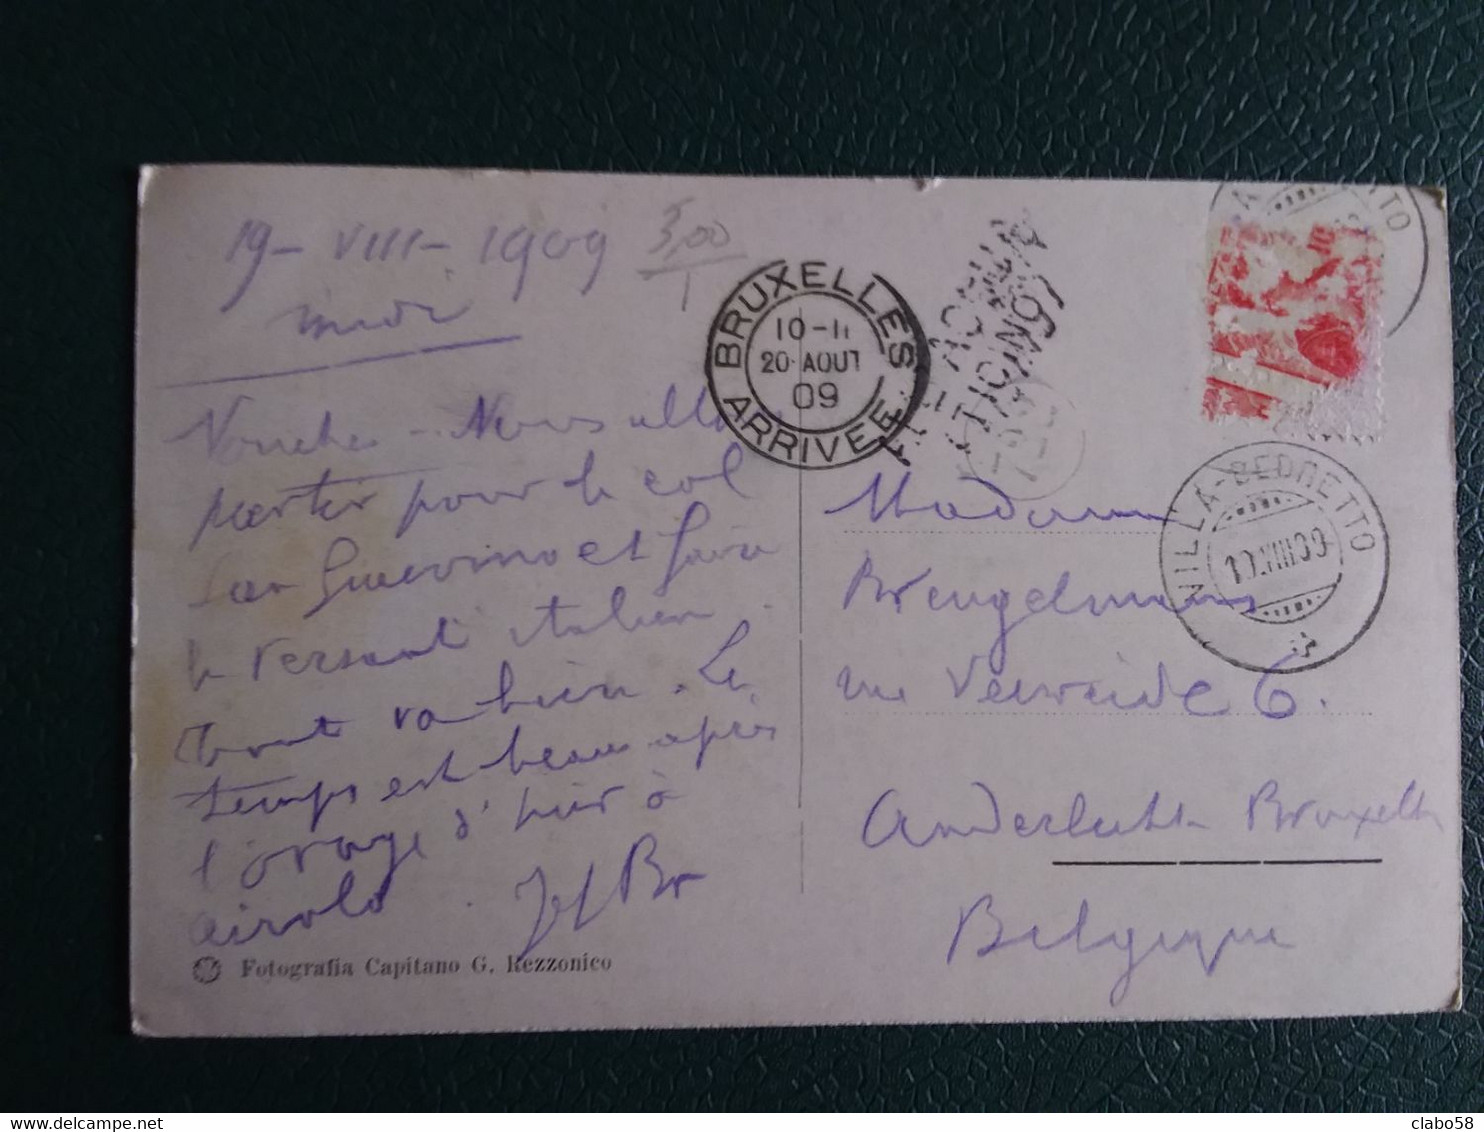 19 - VIII - 1909
3,00
1
midi
Nous
partir pour le col
San Giacomo et faire
le versant italien.
tout va bien. Le
temps est beau après
l'orage d'hier à
Airolo. Jef Br
Fotografia Capitano G. Rezzonico
BRUXELLES
10-11
20 AOUT
09
ARRIVEE
VILLA-BEDRETTO
Madame
Brengelmans
rue Verwei de 6.
Anderlecht Bruxelles
Belgique
clabo58